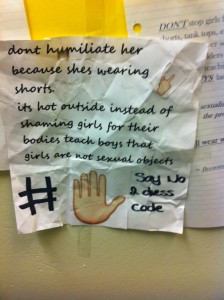 dont humiliate her
because shes wearing
shorts.
its hot outside instead of
shaming girls for their
bodies teach boys that
girls are not sexual objects
#
Say No
2 dress
code
DON'T stop girl
tank tops,